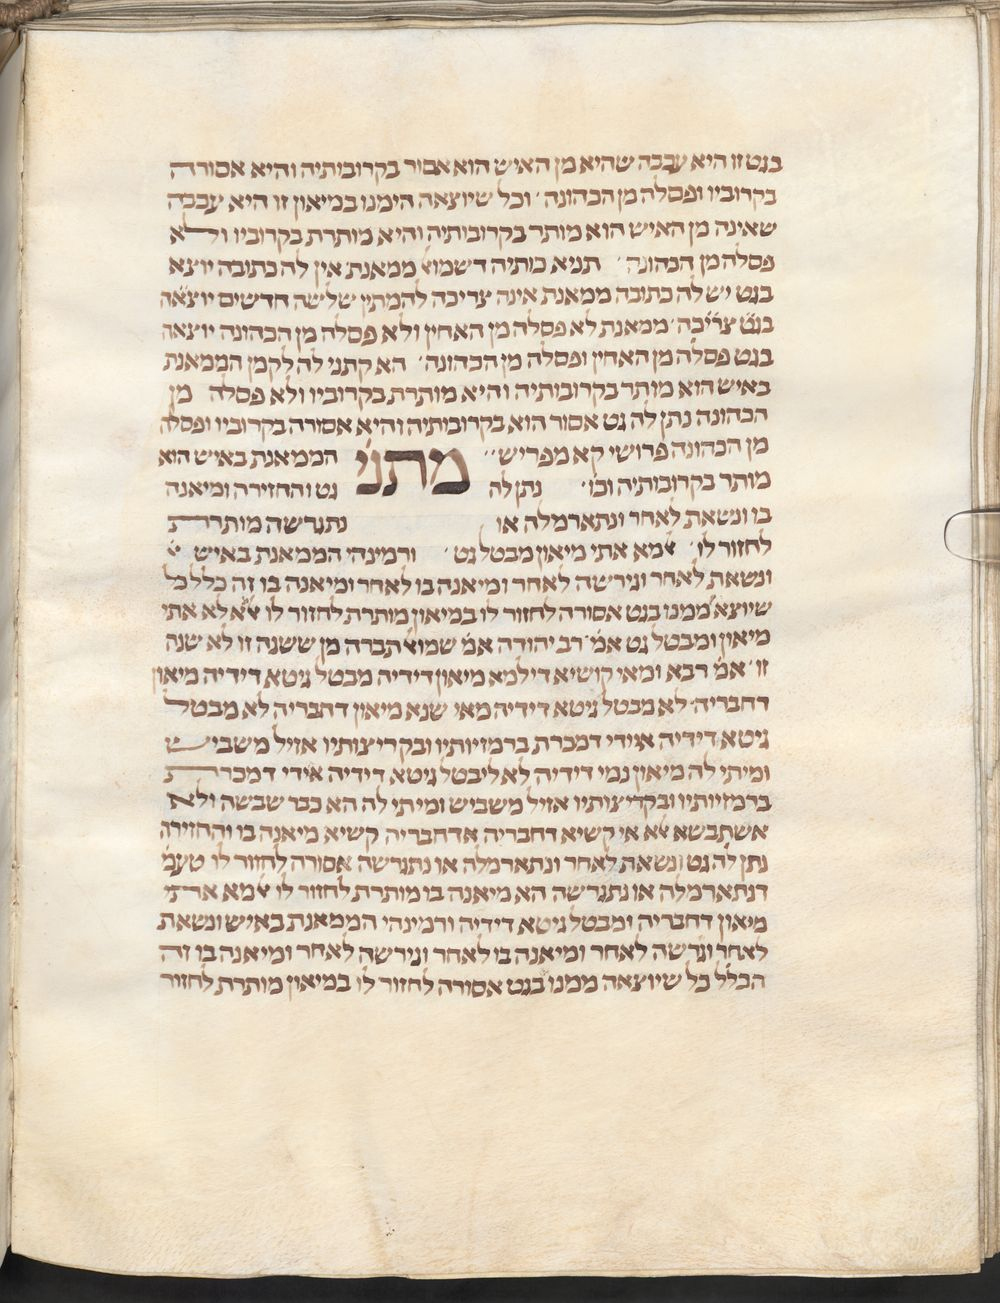 בגט זו היא עכבה שהיא מן האיש הוא אסור בקרובותיה והיא אסורה
בקרוביו ופסלה מן הכהונה׳ וכל שיוצאה הימנו במיאון זו היא עכבה
שאינה מן האיש הוא מותר בקרובותיה והיא מותרת בקרוביו ולא
פסלה מן הכהונה׳ תניא כותיה דשמוא׳ ממאנת אין לה כתובה יוצא
בגט יש לה כתובה ממאנת אינה צריכה להמתין שלשה חדשים יוצאה
בגט צריכה׳ ממאנת לא פסלה מן האחין ולא פסלה מן הכהונה יוצאה
בגט פסלה מן האחין ופסלה מן הכהונה׳ הא קתני לה לקמן הממאנת
באיש הוא מותר בקרובותיה והיא מותרת בקרוביו ולא פסלה מן
הכהונה נתן לה גט אסור הוא בקרובותיה והיא אסורה בקרוביו ופסלה
מן הכהונה פרושי קא מפריש׳׳ מתני׳ הממאנת באיש הוא
מותר בקרובותיה וכו׳ נתן לה גט והחזירה ומיאנה
בו ונשאת לאחר ונתארמלה או נתגרשה מותרת
לחזור לו׳ אלמא אתי מיאון מבטל גט׳ ורמינהי הממאנת באיש
ונשאת לאחר וגירשה לאחר ומיאנה בו לאחר ומיאנה בו זה כלל כל
שיוצא׳ ממנו בגט אסורה לחזור לו במיאון מותרת לחזור לו אלא לא אתי
מיאון ומבטל גט אמ׳ רב יהודה אמ׳ שמואל תברה מן ששנה זו לא שנה
זו׳ אמ׳ רבא ומאי קושיא דילמא מיאון דידיה מבטל גיטא דידיה מיאון
דחבריה לא מבטל גיטא דידיה מאי שנא מיאון דחבריה לא מבטל
גיטא דידיה איידי דמכרת ברמזיותיו ובקריצותיו אזיל משביש
ומיתי לה מיאון נמי דידיה לא ליבטל גיטא דידיה אידי דמכרת
ברמזיותיו ובקריצותיו אזיל משביש ומיתי לה הא כבר שבשה ולא
אשתבשא אלא אי קשיא דחבריה אדחבריה קשיא מיאנה בו והחזירה
נתן לה גט ונשאת לאחר ונתארמלה או נתגרשה אסורה לחזור לו טעמ׳
דנתארמלה או נתגרשה הא מיאנה בו מותרת לחזור לו אלמא אתי
מיאון דחבריה ומבטל גיטא דידיה ורמינהי הממאנת באיש ונשאת
לאחר וגרשה לאחר ומיאנה בו לאחר וגירשה לאחר ומיאנה בו זה
הכלל כל שיוצאה ממנו בגט אסורה לחזור לו במיאון מותרת לחזור